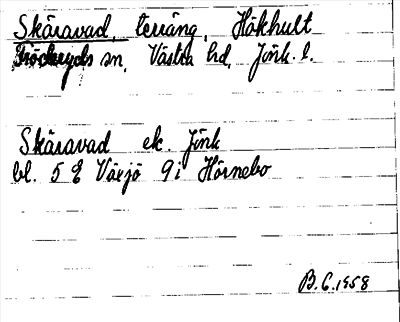 Skäravad, terräng, Håkhult
Bröckryds sn, Västra hd, Jönk. l.
Skäravad ek. Jönk
bl. 5 E Växjö 9i Hörnebo
B.G. 1958